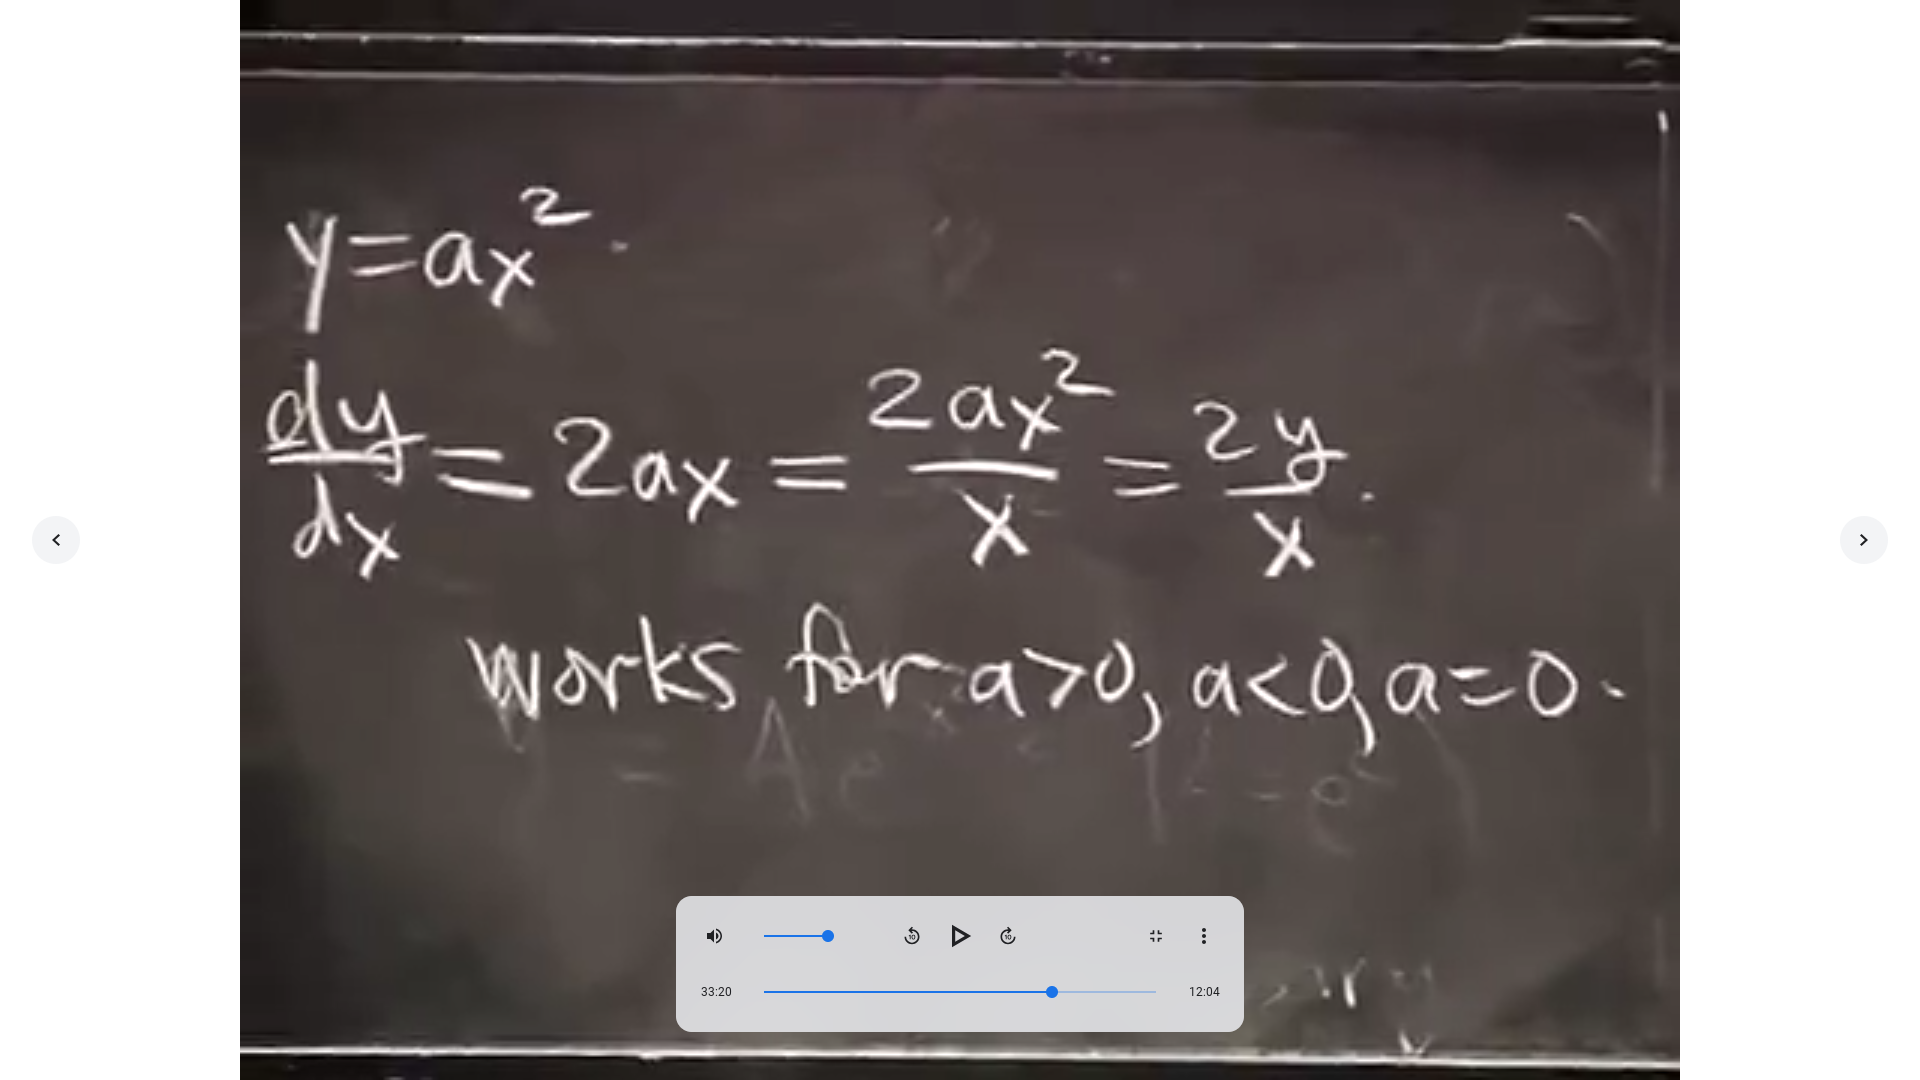 y=ax²
dy/dx = 2ax = 2ax²/x = 2y/x.
works for a>0, a<0, a=0.
33:20
12:04